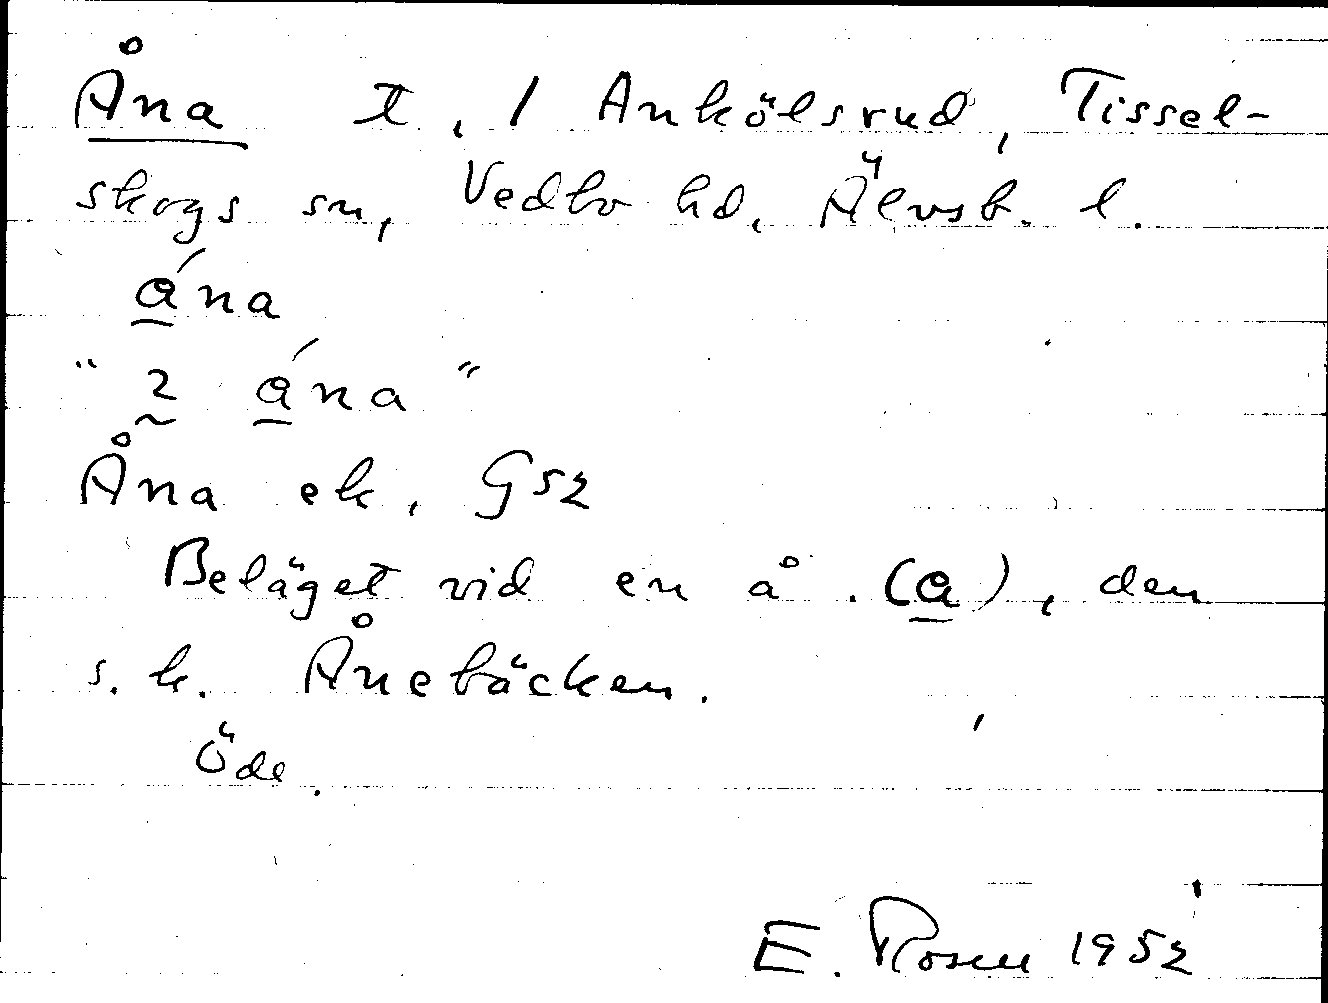 Åna t, 1 Ankölsrud, Tissel-
skogs sn, Vedbo hd, Älvsb. l.
á̲na
" 2̰ á̲na "
Åna ek. G52
Beläget vid en å. (a̲), den
s. k. Ånebäcken.
Öde.
E. Rosen 1952